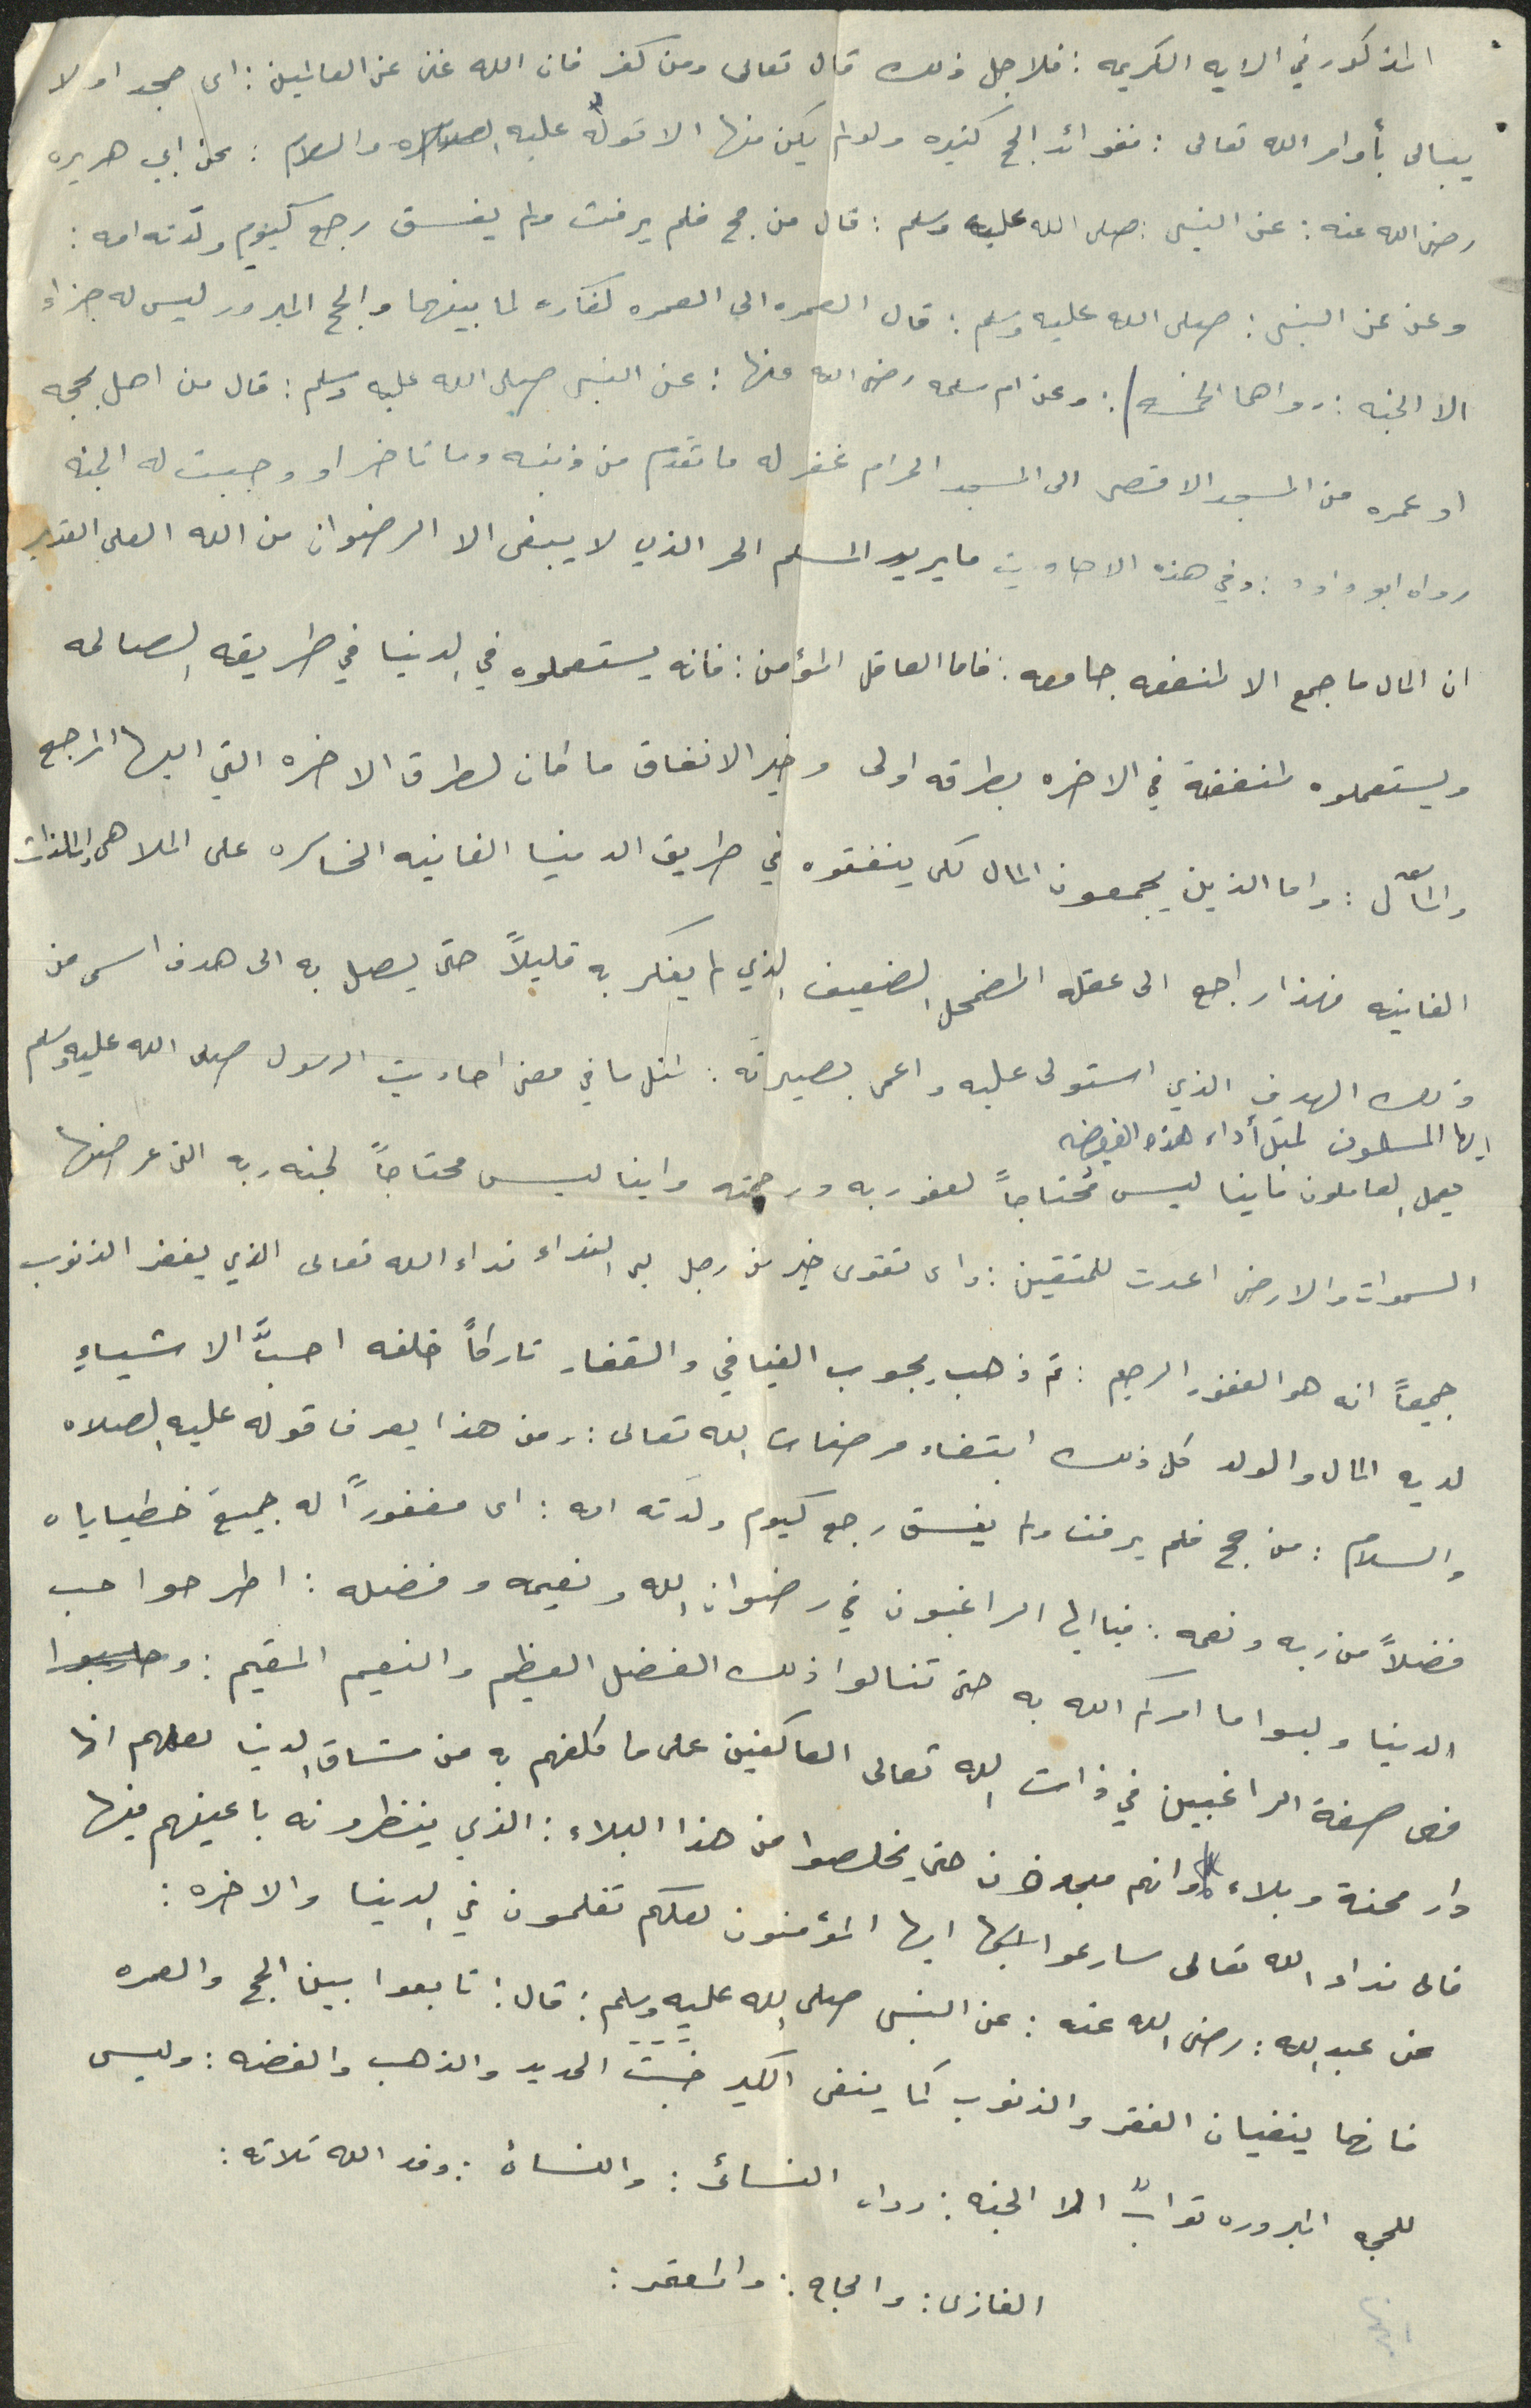 المذكور في الايه الكريمه : فلاجل ذلك قال تعالى ومن كفر فان الله غني عن العالمين : اى جحد او لا
يبالى بأوامر الله تعالى : ففوائد الحج كثيره ولو لم يكن منها الا قوله عليه الصلاه والسلام : عن ابي هريره
رضى الله عنه : عن النبى : صلى الله عليه وسلم : قال من حج فلم يرفث ولم يفسق رجع كيوم ولدته امه :
وعن عن النبى : صلى الله عليه وسلم : قال العمره الى العمره كفاره لما بينهما والحج المبرور ليس له جزاء
الا الجنه : رواهما الخمسه / : وعن ام سلمه رضى الله عنها : عن النبى صلى الله عليه وسلم : قال من اهل بحجه
او عمره من المسجد الاقصى الى المسجد الحرام غفر له ما تقدم من ذنبه وما تاخر او وجبت له الجنه
رواه ابو داود : وفي هذه الاحاديث ما يريد المسلم الحر الذي لا يبغى الا الرضوان من الله العلي القدير
ان المال ما جمع الا لمنفعه جامعه : فاما العاقل المؤمن : فانه يستعملوه في الدنيا في طريقه الصالحه
ويستعملوه لمنفعة في الاخره بطرقه اولى وخير الانفاق ما كان لطرق الاخره التي اليها المرجع
والمآل : واما الذين يجمعون المال لكى ينفقوه في طريق الدنيا الفانيه الخاسره على الملاهى والملذات
الفانيه فهذا راجع الى عقله المضمحل الضعيف الذي لم يفكر به قليلاً حتى يصل به الى هدف اسمى من
ذلك الهدف الذي استولى عليه واعمى بصيرته : لمثل ما في معنى احاديث الرسول صلى الله عليه وسلم
ايها المسلمون لمثل أداء هذه الفريضه
يعمل العاملون فاينا ليس محتاجاً لعفو ربه ورحمته واينا ليس محتاجاً لجنه ربه التى عرضها
السموات والارض اعدت للمتقين : واى تقوى خير من رجل لبى النداء نداء الله تعالى الذي يغفر الذنوب
جميعاً انه هو الغفور الرحيم : ثم ذهب يجوب الفيافي والقفار تاركاً خلفه احبَّ الاشياءِ
لديه المال والولد كل ذلك ابتغاء مرضات الله تعالى : ومن هذا يعرف قوله عليه الصلاه
والسلام : من حج فلم يرفث ولم يفسق رجع كيوم ولدَته امه : اى مغفوراً له جميع خطياياه
فضلاً من ربه ونعمه : فيا ايها الراغبون في رضوان الله ونعيمه وفضله : اطرحوا حب
الدنيا ولبوا ما امركم الله به حتى تنالوا ذلك الفضل العظيم والنعيم المقيم : وحاسبوا
فهى صفة الراغبين في ذات الله تعالى العاكفين على ما كلفهم به من مشاق الدنيا لعلهم انها
دار محنة وبلاء وانهم حتى يخلصوا من هذا البلاء : الذي ينظرونه باعينهم فيها
فالى نداء الله تعالى سارعوا ايها المؤمنون لعلكم تفلحون في الدنيا والاخره :
عن عبد الله : رضى الله عنه : عن النبى صلى الله عليه وسلم : قال : تابعوا بين الحج والعمره
فانهما ينفيان الفقر والذنوب كما ينفى الكير خبث الحديد والذهب والفضه : وليس
للحجه المبروره ثوابٌ الا الجنه : رواه النسائى : والنسائ : وفد الله ثلاثه :
الغازى : والحاج : والمعتمر :